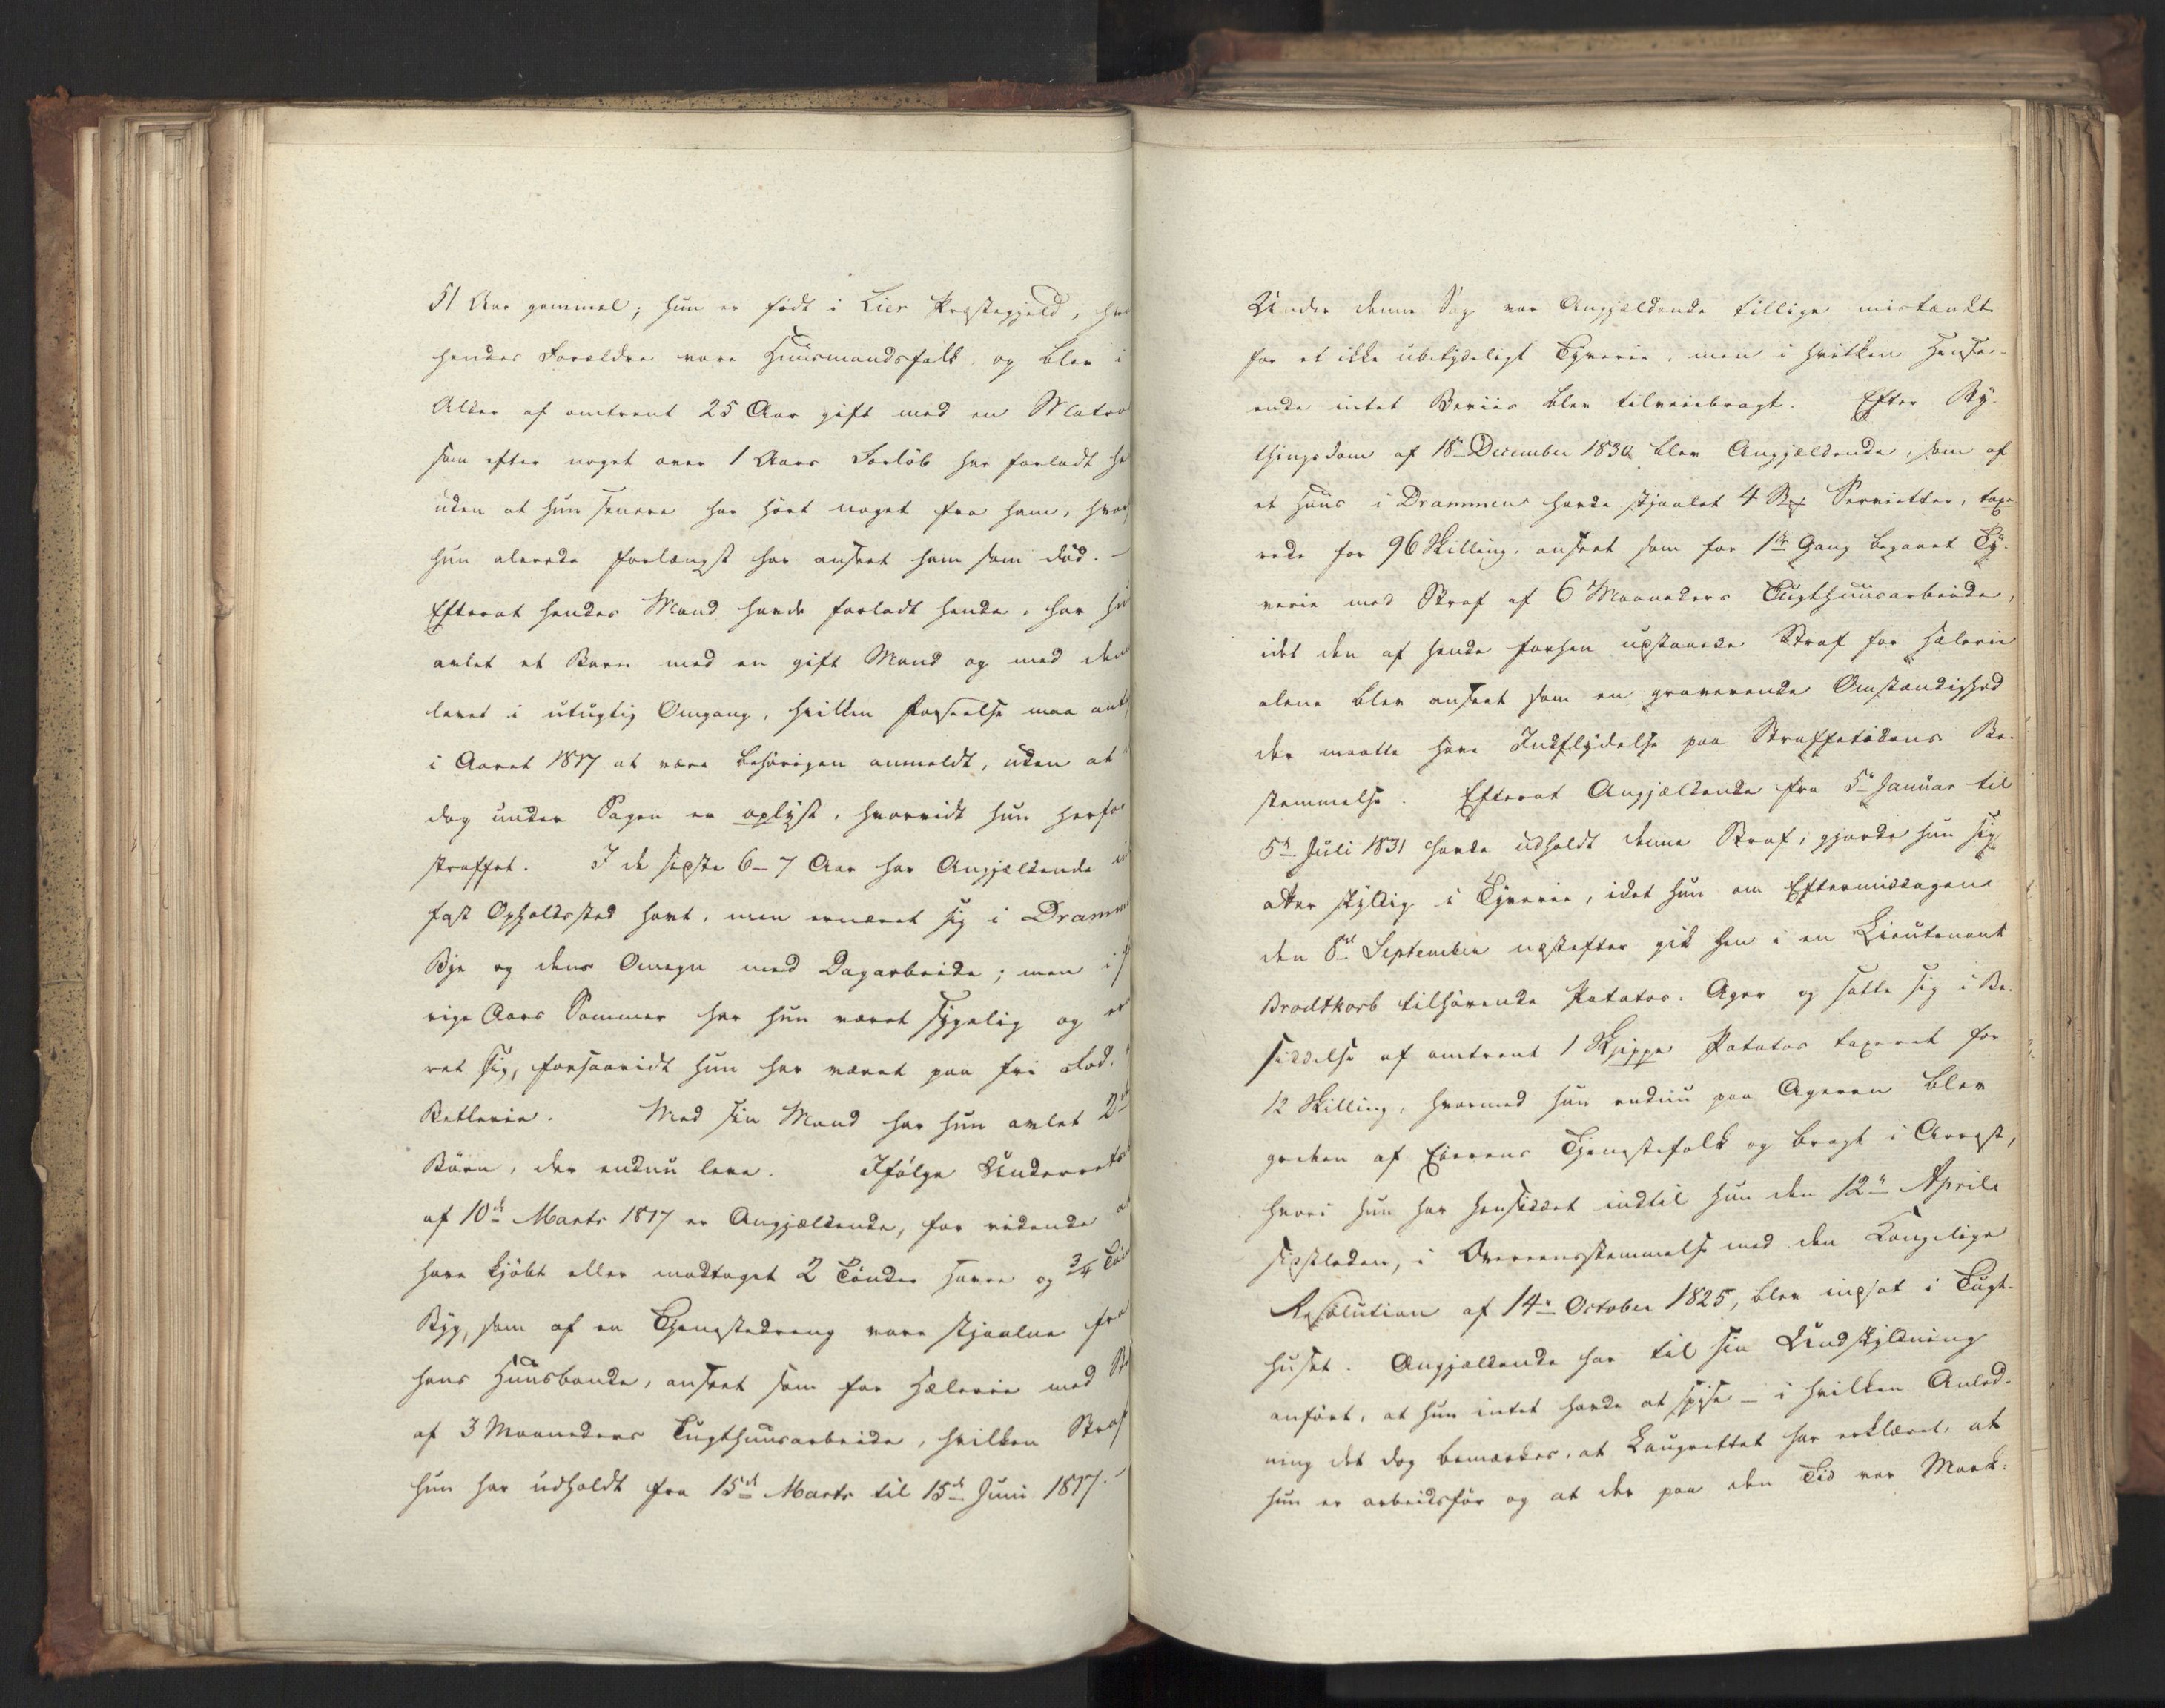 51 Aar gammel; hun er født i Lier Præstegjeld, hvo
hendes Forældre vare Huusmandsfolk, og blev i
Alder af omtrent 25 Aar gift med en Matro
som efter noget over 1 Aars Forløb har forladt he
uden at hun senere har hørt noget fra ham, hvor
hun alerede forlængst har anseet ham som død. –
Efterat hendes Mand havde forladt hende, har hu
avlet et Barn med en gift Mand og med den
levet i utugtig Omgang, hvilken Forseelse maa ant
i Aaret 1817 at være behørigen anmeldt, uden at
dog under Sagen er oplyst, hvorvidt hun herfor
straffet. I de sidste 6–7 Aar har Angjældende i
fast Opholdssted havt, men ernæret sig i Dramm
Bye og dens Omegn med Dagarbeide; men i f
rige Aars Sommer har hun været sygelig og er
ret sig, forsaavidt hun har været paa fri Fod,
Betlerie. Med sin Mand har hun avlet 2
Børn, der endnu leve. Ifølge Underrets
af 10de Marts 1817 er Angjældende, for vidende a
have kjøbt eller modtaget 2 Tønder Havre og 3/4 Tøn
Byg, som af en Tjenestedreng vare stjaalne fra
hans Huusbonde, anseet som for Hælerie med St
af 3 Maaneders Tugthuusarbeide, hvilken Straf
hun har udholdt fra 15de Marts til 15de Juni 1817. –
Under denne Sag var Angjældende tillige mistænkt
for et ikke ubetydeligt Tyverie, men i hvilken Hense-
ende intet Beviis blev tilveiebragt. Efter By-
thingsdom af 18de December 1830 blev Angjældende, som af
et Huus i Drammen havde stjaalet 4 Stk Servietter, taxe
rede for 96 Skilling, anseet som for 1ste Gang begaaet Ty-
verie med Straf af 6 Maaneders Tugthuusarbeide,
idet den af hende forhen udstaaede Straf for Hælerie
alene blev anseet som en graverende Omstændighed
der maatte have Indflydelse paa Straffetidens Be-
stemmelse. Efterat Angjældende fra 5te Januar til
5te Juli 1831 havde udholdt denne Straf, gjorde hun sig
atter skyldig i Tyverie, idet hun om Eftermiddagen
den 8de September næstefter gik hen i en Lieutenant
Brodtkorb tilhørende Potatos-Ager og satte sig i Be-
siddelse af omtrent 1 Skjeppe Potatos taxeret for
12 Skilling, hvormed hun endnu paa Ageren blev
greben af Eierens Tjenestefolk og bragt i Arrest,
hvori hun har hensiddet indtil hun den 12te April
sidstleden, i Overeensstemmelse med den Kongelige
Resolution af 14de October 1825, blev indsat i Tugt-
huset. Angjældende har til sin Undskyldning
anført, at hun intet havde at spise – i hvilken Anled-
ning det dog bemærkes, at Laugrettet har erklæret, at
hun er arbeidsfør og at der paa den Tid var Mark-